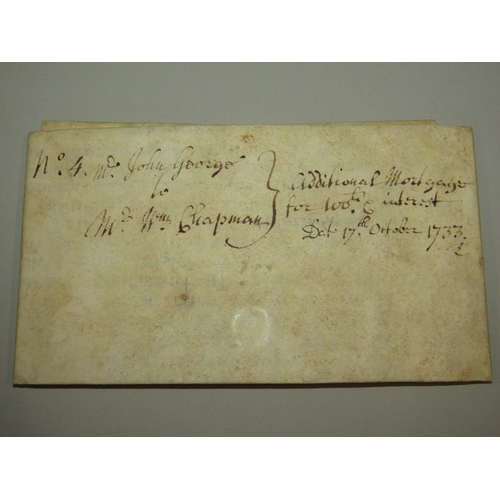 No. 4. Mr. John George
to
Mr. Wm. Chapman
Additional Mortgage
for 100£ & interest
Date 17th. October 1733.